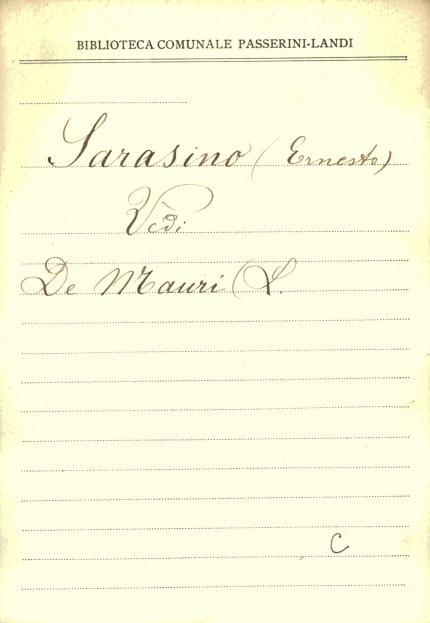 BIBLIOTECA COMUNALE PASSERINI-LANDI
Sarasino (Ernesto)
Vedi
De Mauri (L.
C